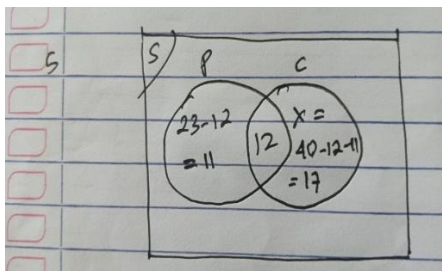 5
S
P C
23-12
= 11
12
x =
40-12-11
= 17